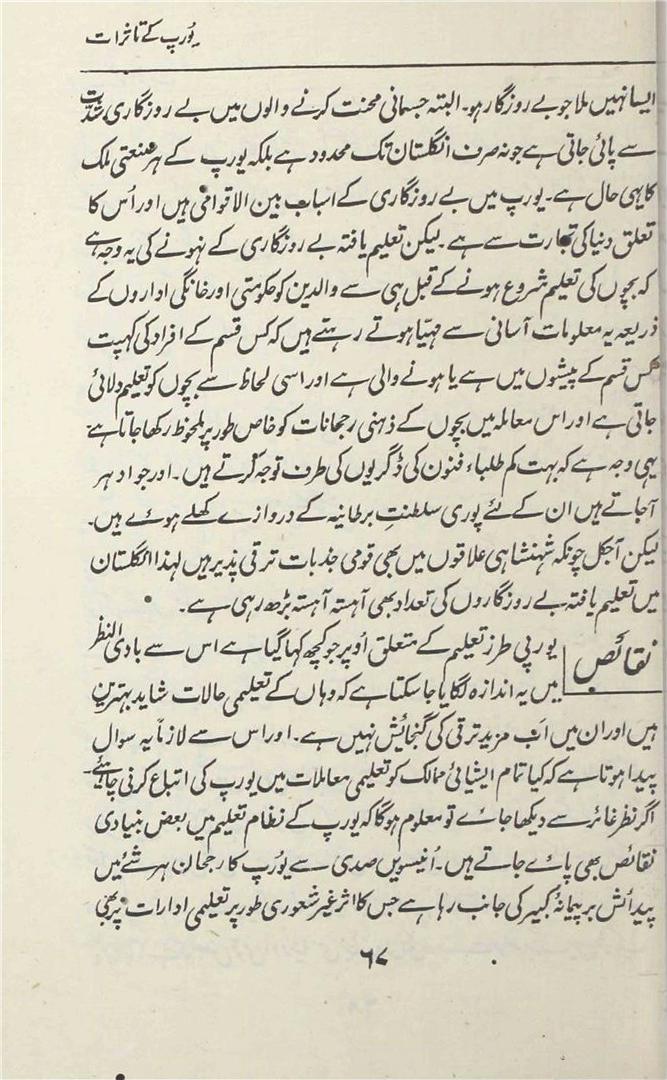 یُورپ کے تاثرات
ایسا نہیں ملا جو بے روزگار ہو۔ البتہ جسمانی محنت کرنے والوں میں بے روزگاری شدّت
سے پائی جاتی ہے جو نہ صرف انگلستان تک محدود ہے بلکہ یورپ کے ہر صنعتی ملک
کا یہی حال ہے۔ یورپ میں بے روزگاری کے اسباب بین الاقوامی ہیں اور اُس کا
تعلق دنیا کی تجارت سے ہے۔ لیکن تعلیم یافتہ بے روزگاری کے نہونے کی یہ وجہ ہے
کہ بچوں کی تعلیم شروع ہونے کے قبل ہی سے والدین کو حکومتی اور خانگی اداروں کے
ذریعہ یہ معلومات آسانی سے مہیّا ہوتے رہتے ہیں کہ کس قسم کے افراد کی کہپت
کس قسم کے پیشوں میں ہے یا ہونے والی ہے اور اسی لحاظ سے بچوں کو تعلیم دلائی
جاتی ہے اور اس معاملہ میں بچوں کے ذہنی رجحانات کو خاص طور پر ملحوظ رکھا جاتا ہے
یہی وجہ ہے کہ بہت کم طلباء فنون کی ڈگریوں کی طرف توجہ کرتے ہیں۔ اور جو ادہر
آجاتے ہیں ان کے لئے پوری سلطنتِ برطانیہ کے دروازے کھلے ہوئے ہیں۔
لیکن آجکل چونکہ شہنشاہی علاقوں میں بھی قومی جذبات ترقی پذیر ہیں لہذا انگلستان
میں تعلیم یافتہ بے روزگاروں کی تعداد بھی آہستہ آہستہ بڑھ رہی ہے۔
نقائص
یورپی طرز تعلیم کے متعلق اُوپر جو کچھ کہا گیا ہے اس سے بادی النظر
میں یہ اندازہ لگایا جاسکتا ہے کہ وہاں کے تعلیمی حالات شاید بہترین
ہیں اور ان میں اَب مزید ترقی کی گنجائش نہیں ہے۔ اور اس سے لازماً یہ سوال
پیدا ہوتا ہے کہ کیا تمام ایشیائی ممالک کو تعلیمی معاملات میں یورپ کی اتباع کرنی چاہئیے۔
اگر نظر غائر سے دیکھا جائے تو معلوم ہوگا کہ یورپ کے نظام تعلیم میں بعض بنیادی
نقائص بھی پائے جاتے ہیں۔ اُنیسویں صدی سے یُورپ کا رجحان ہر شئے میں
پیدائش بر پیمانۂ کبیر کی جانب رہا ہے جس کا اثر غیر شعوری طور پر تعلیمی ادارات پر بھی
۶۷